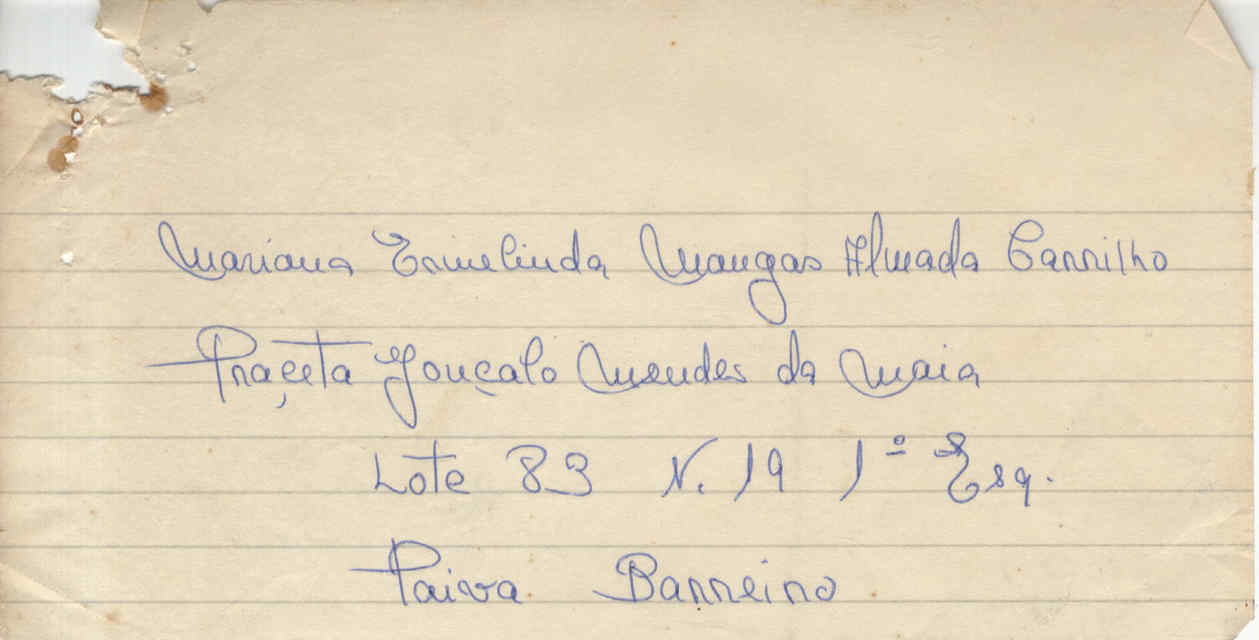 Mariana Ermelinda Mangas Almada Carrilho
Praçeta Gonçalo Mendes da Maia
Lote 83 N. 19 1º Esq.
Paiva Barreiro